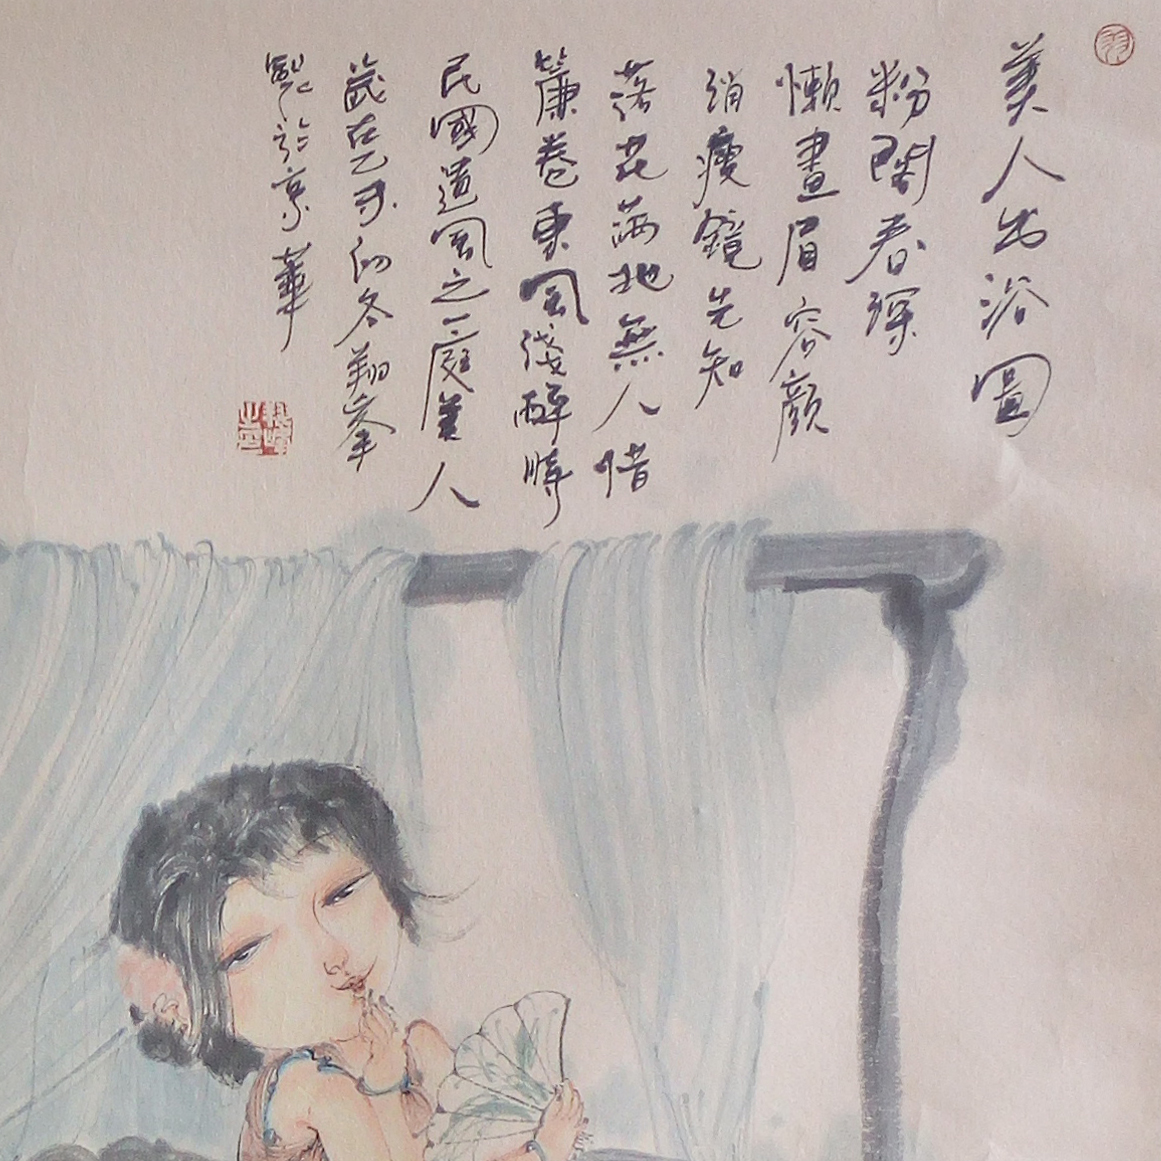 美人出浴圖
粉閣春深
懶畫眉容顏
消瘦鏡先知
落花滿地無人惜
簾卷東風淺醉時
民國遺風之二庭美人
歲在乙未仲冬翔峯
製於京華